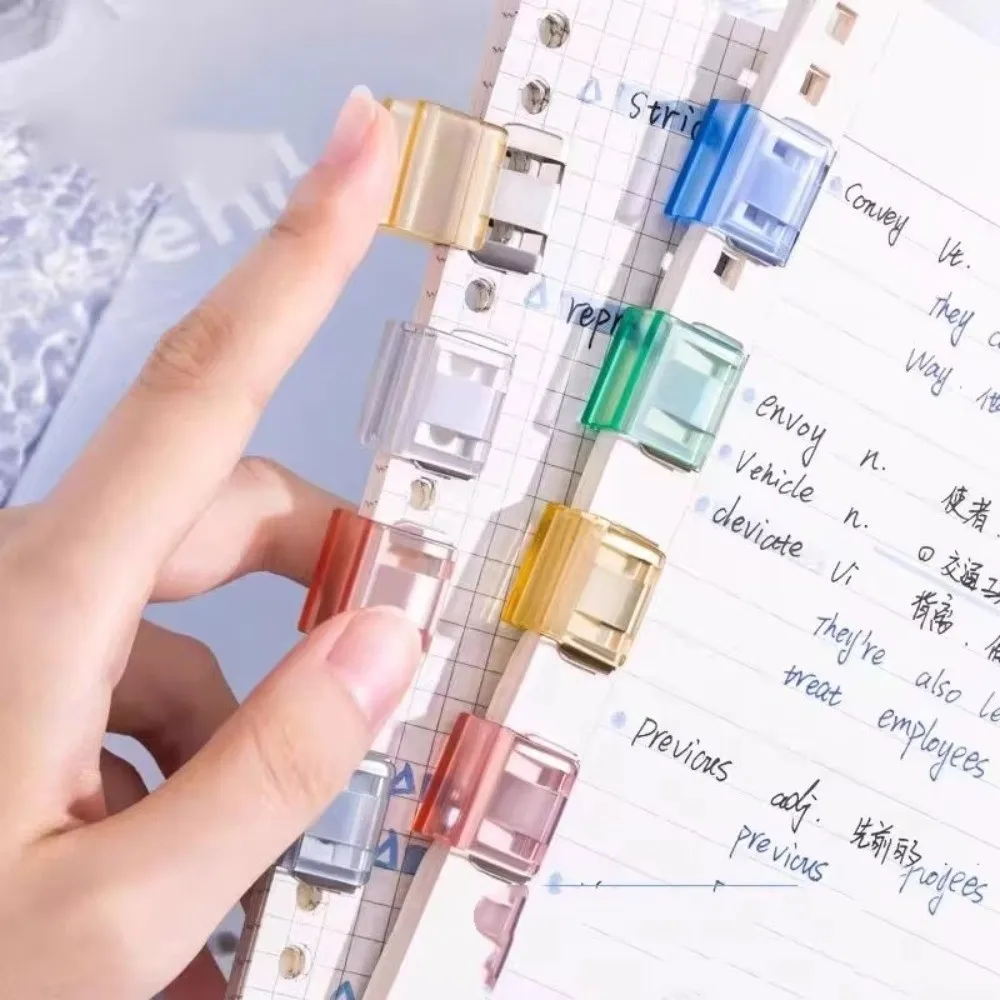 Stric
repr
Convey vt.
They
Way.
envoy n.
使者.
Vehicle n.
交通工
deviate vi
背离.
They're also le
treat employees
previous adj. 先前的
previous